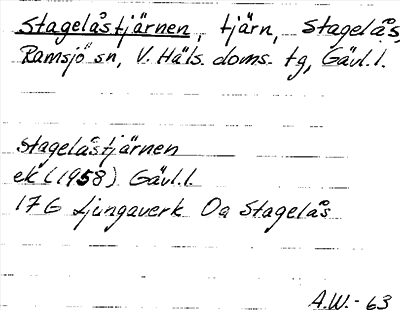 Stagelåstjärnen, tjärn, Stagelås,
Ramsjö sn, V. Häls. doms. tg, Gävl. l.
Stagelåstjärnen
ek (1958) Gävl. l.
17 G Ljungaverk 0a Stagelås
A.W.- 63